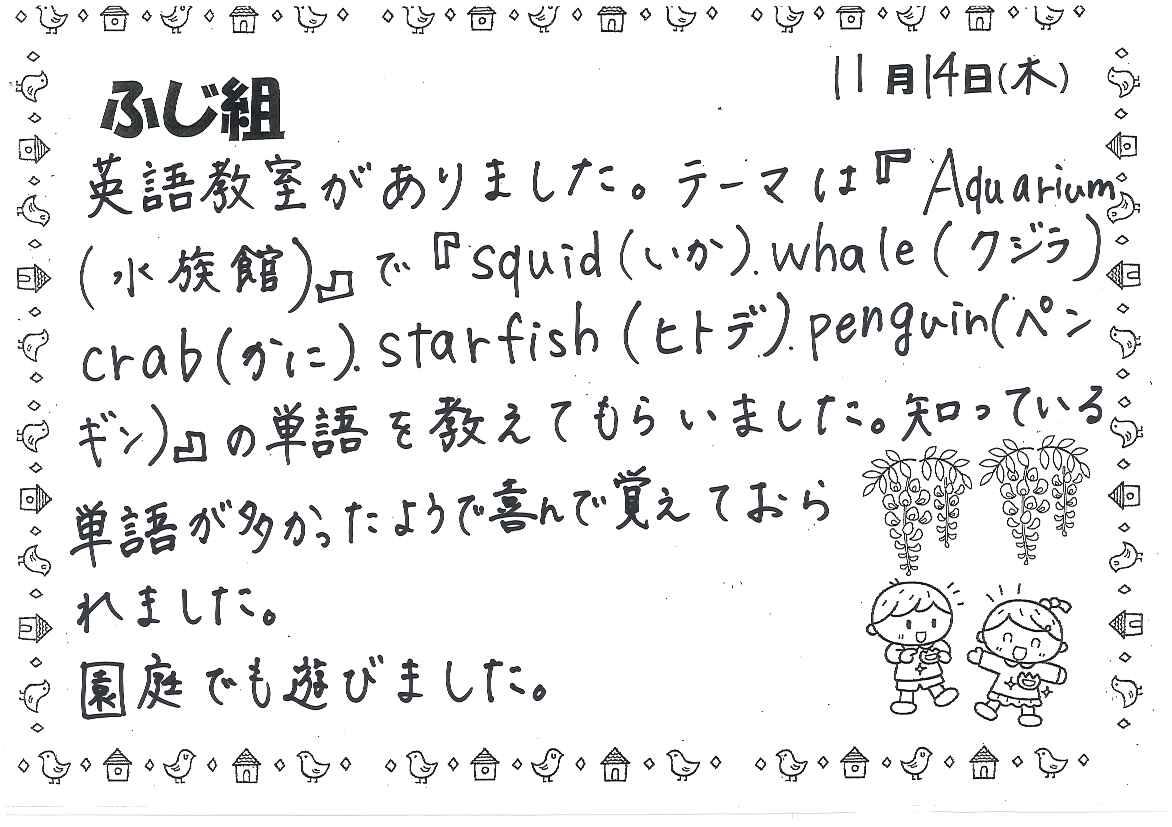 11月14日(木)
ふじ組
英語教室がありました。テーマは『Aquarium
(水族館)』で『squid(いか).whale(クジラ)
crab(かに).starfish(ヒトデ).penguin(ペン
ギン)』の単語を教えてもらいました。知っている
単語が多かったようで喜んで覚えておら
れました。
園庭でも遊びました。